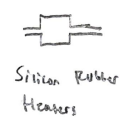 Silicon Rubber
Heaters